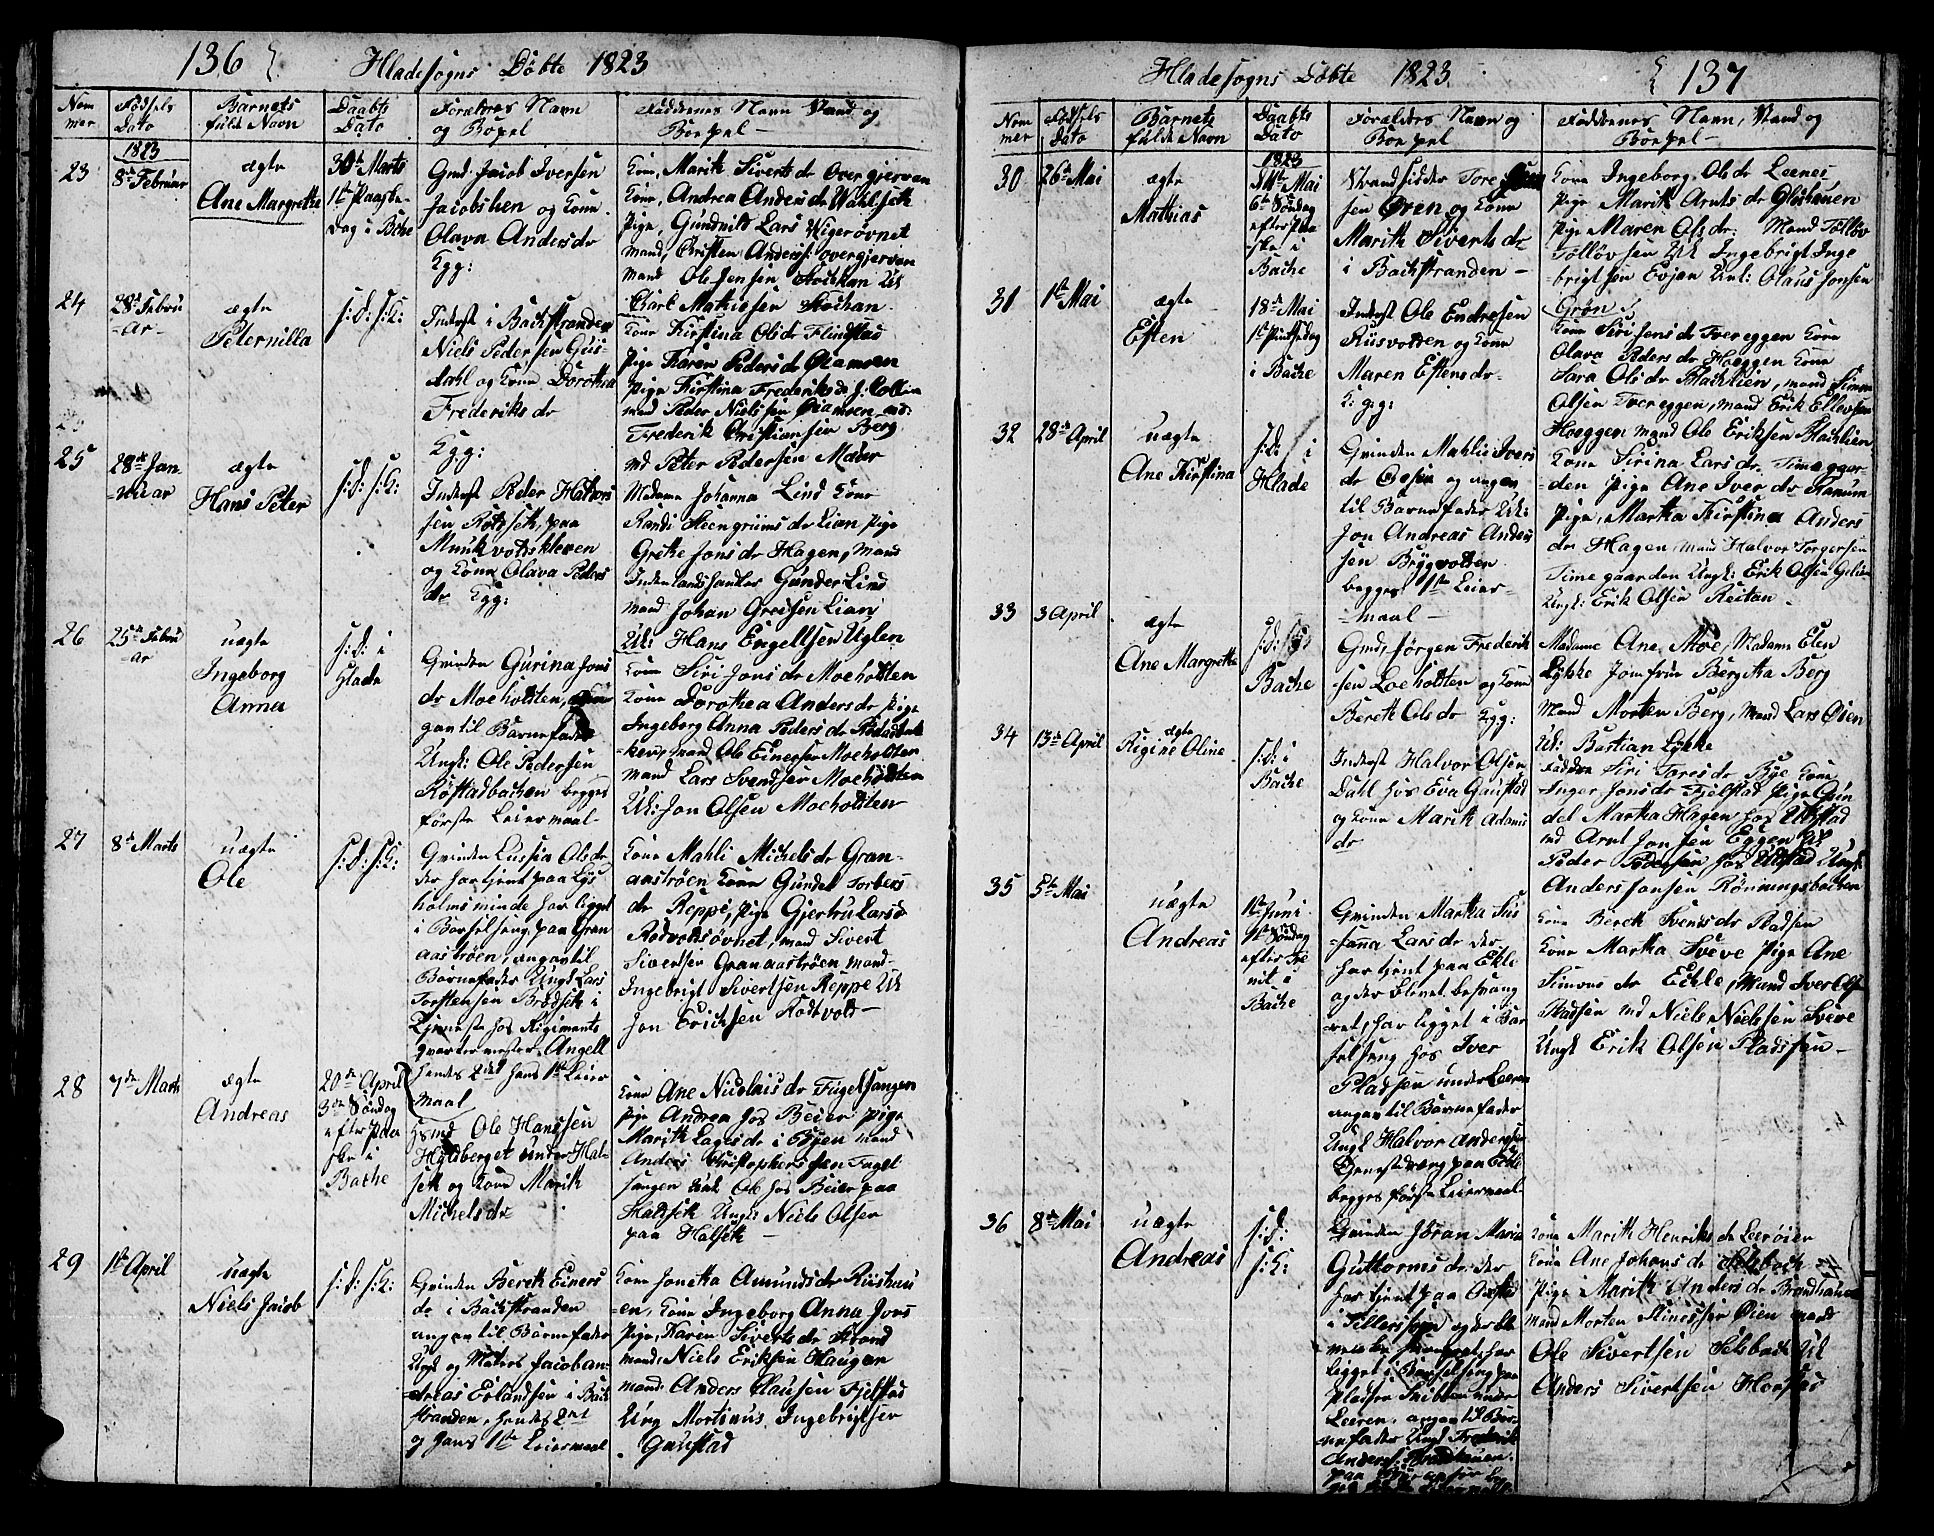 136
Hladesogns Döbte 1823
Nom
mer
Födsels
Dato
Barnets
fulde Navn
Daabts
Dato
Forældres Navn
og Bopel
Faddernes Navn Stand og
Boepel
23
1823
8de Februar
ægte
Ane Margrethe
30te Marts
1ste Paaske-
dag i Bache
Gmd. Jacob Iversen
Jacobslien og Kone
Olava Andersdr
Kgg:
Kone, Marith Siverts dr Overgjervan
Kone, Andrea Anders dr
Pige, Gundnild Lars
mand, Christen Anders: overgjervan
mand Ole Jensen Stockan Uk
24
28de Febru
-ar
ægte
Peternilla
s: D: s: K:
Inderst i Backstranden
Niels Pedersen Gus-
dahl og Kone Dorothea
Frederiks dr
Kgg:
Carl Mathiesen Stockan
Kone Kirstina Ols dr Flindstad
Pige Karen Peders dr
Pige Kirstina Frederiks dr
mand Peder Nielssen
Frederik Christiansen Berg
md Peter Pedersen Maur
25
28de Jan-
-nuar
ægte
Hans Peter
s: D: s: K:
Inderst Peder
sen paa
Munkvoldskleven
og Kone Olava Peders
dr Kgg:
Madame Johanna Lind Kone
Randi Steengriims dr Lian Pige
Grethe Jons dr Hagen, mand
Gunder Lind
mand Johan Greisen Lian
26
25de Febru
-ar
uægte
Ingeborg
Anna
s: D: i
Hlade
Qvinden Gurina Jons
dr Moeholdten,
gav til Barnefader
Ungk: Ole Pedersen
Röstadbachen begges
første Leiermaal-
Uk: Hans Engellsen Uglen
Kone Siri Jons dr Moeholdten
Kone Dorothea Anders dr Pige
Ingeborg Anna Peders dr
-ken, mand Ole Einersen Moeholten
mand Lars Svendsen Moeholdten
Uk: Jon Olsen Moeholdten
27
8de Marts
uægte
Ole
s: D: s: K:
Qvinden Lussia Ols dr
der har tjent paa Lys
holmsminde har ligget
i Barselseng paa Gran
aastrøen, angav til
Barnefader Ungk Lars
Torstensen Brødsek i
Tjeneste hos Regiments
qvartermester Angell
hendes 2det hans 1ste Leier
maal
Kone Mahli Michels dr Gran-
aastrøen Kone Gunnel Torbers
dr Reppe, Pige Gjertru Larsd
Rodvoldsøvnet, mand Sivert
Sivertsen Granaastrøen mand
Ingebrigt Sivertsen Reppe Uk
Jon Erichsen Rodtvold-
28
7de Marts
ægte
Andreas
20de April
3de Søndag
efter Paa
ske i
Bache
Ole Hanssen
under Hal-
sek og Kone Marith
Michels dr
Kone Ane Nicolais dr Fugelsangen
Pige Andrea hos Beier Pige
Marith Lages dr i Byen mand
Anders Christophersen Fugel
sangen Uk Ole hos Beier paa
Ungk: Niels Olsen
paa Halsek
29
1ste April
uægte
Niels Jacob
s: D: s: K:
Qvinden Bereth Einers
dr i Backstranden
angav til Barnefader
Ungk og Matros Jacob an-
-dreas Erlandsen i Back
stranden, hendes 2det
og hans 1ste Leiermaal
Kone Jonetta Amunds dr
-en, Kone Ingeborg Anna Jons
Pige, Karen Siverts dr Strand
mand, Niels Eriksen Haugan
mand Anders Clausen Fjelstad
Ung Mortinus Ingebrigtsen
Gaustad
137
Hladesogns Döbte 1823
Nom
mer
Födsels
dato
Barnets
fulde Navn
Daabts
Dato
Forældres Navn og
Boepel
Faddernes Navn, Stand og
Boepel-
30
26de Mai
ægte
Mathias
1823
Mai
6te Søndag
efter Paa
ske i
Bache
Strandsidder Tore
sen Øren og Kone
Marith Siverts dr
i Backstranden -
Kone Ingeborg Ols dr Leenes
Pige Marith Arnts dr Gløshauen
Pige Maren Ols dr: Mand Tolløv
Tolløvsen Uk Ingebrigt Inge
brigtsen Evjan Unk: Olaus Jonsen
Grøn
31
1ste Mai
ægte
Esten
18de Mai
1ste Pintsedag
i Bache
Inderst Ole Endresen
Kusvolden og Kone
Maren Estens dr
K: g: g:
Kone Siri Jens dr Tvereggen Kone
Olava Peders dr Hoeggen Kone
Sara Ols dr Backlien, mand Simon
Olsen Tvereggen, mand Erik Ellevsen
Hoeggen mand Ole Eriksen Backlien
32
28de April
uægte
Ane Kirstina
s: D: i
Hlade
Qvinden Mahlie Ivers
dr og angav
til Barnefader Uk:
Jon Andreas Anders
sen Brygvolden
begges 1ste Leier-
-maal-
Kone Sirina Lars dr Timeggar-
-den Pige Ane Iver dr Ranum
Pige, Martha Kirstina Anders
dr Hagen mand Halvor Torgersen
Timegaarden Ungk: Erik Olsen
Ungk: Erik Olsen Reitan
33
3 April
ægte
Ane Margrethe
s: D:
Bache
Gmd, Jørgen Frederik
sen Loeholdten og Kone
Bereth Ols dr Kgg:
Madame Ane Moe, Madame Elen
Lykke Jomfrue Bergitha Berg
Mand Morten Berg, Mand Lars Øien
Uk: Bastian Lykke
34
13de April
ægte
Regine Oline
s: D: i
Bache
Inderst Halvor Olsen
Dahl hos Eva Gaustad
og Kone Marith Adams
dr
Fadder Siri Tores dr Bye Kone
Inger Jons dr Fjelstad Pige Grün
del Martha Hagen hos
md Arnt Jonsen Eggen Uk
Peder Pedersen hos Ungk:
Anders Jonsen Rönningsbachen
35
5te Mai
uægte
Andreas
1ste Juni
1ste Søndag
efter Tre
nit: i
Bache
Qvinden Martha Sus
-sanna Lars dr der
har tjent paa Ekle
og der blevet besvang
ret, har ligget i Bar
selseng hos Iver
Pladsen under Leeren
angav til Barnefader
Ungk Halvor Andersen
Tjenestedreng paa Ekle
begges første Leiermaal-
Kone Bereth Svends dr Pladsen
Kone Martha Sveve Pige Ane
Simons dr Eckle, Mand Iver Ols
Pladsen md Niels Nielssen Sveve
Ungk Erik Olsen Pladssen-
36
8de Mai
uægte
Andreas
s: D:
s: K:
Qvinden Jøran Maria
Guttorms dr. der
har tjent paa
i Tillersbyen og der ble
ven besvangret, har
ligget i Barselseng paa
Pladsen under
Leeren, angav til Bar-
nefader Ungk Frederik
Anders:
paa
Kone Marith Henriks dr Leerøien
Kone Ane Johans dr Selsbach
Pige Marith Anders dr
Mand Morten Øien mand
Ole Sivertsen Selsbach Uk
Anders Sivertsen Horstad